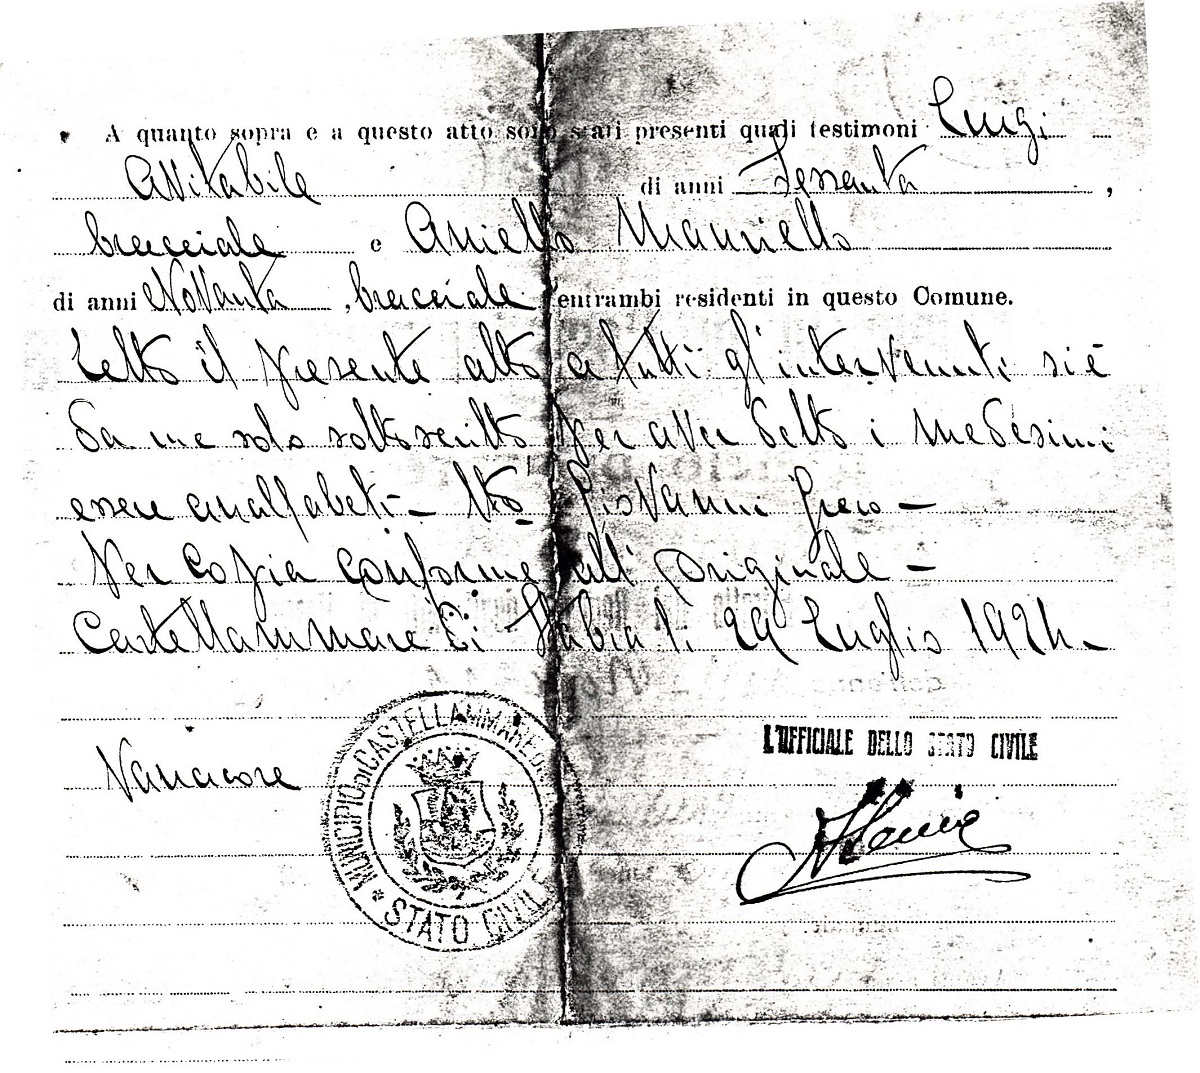 A quanto sopra e a questo atto sono stati presenti quali testimoni Luigi
Avitabile di anni Sessanta,
bracciale e Aniello Mauriello
di anni Novanta, bracciale entrambi residenti in questo Comune.
Letto il presente atto a tutti gl'intervenuti si è
da me solo sottoscritto per aver detto i medesimi
essere analfabeti - Fto Giovanni Greco -
Per copia conforme all'originale -
Castellammare di Stabia li 29 Luglio 1924 -
L'UFFICIALE DELLO STATO CIVILE
Vanacore
MUNICIPIO DI CASTELLAMMARE DI
STATO CIVILE